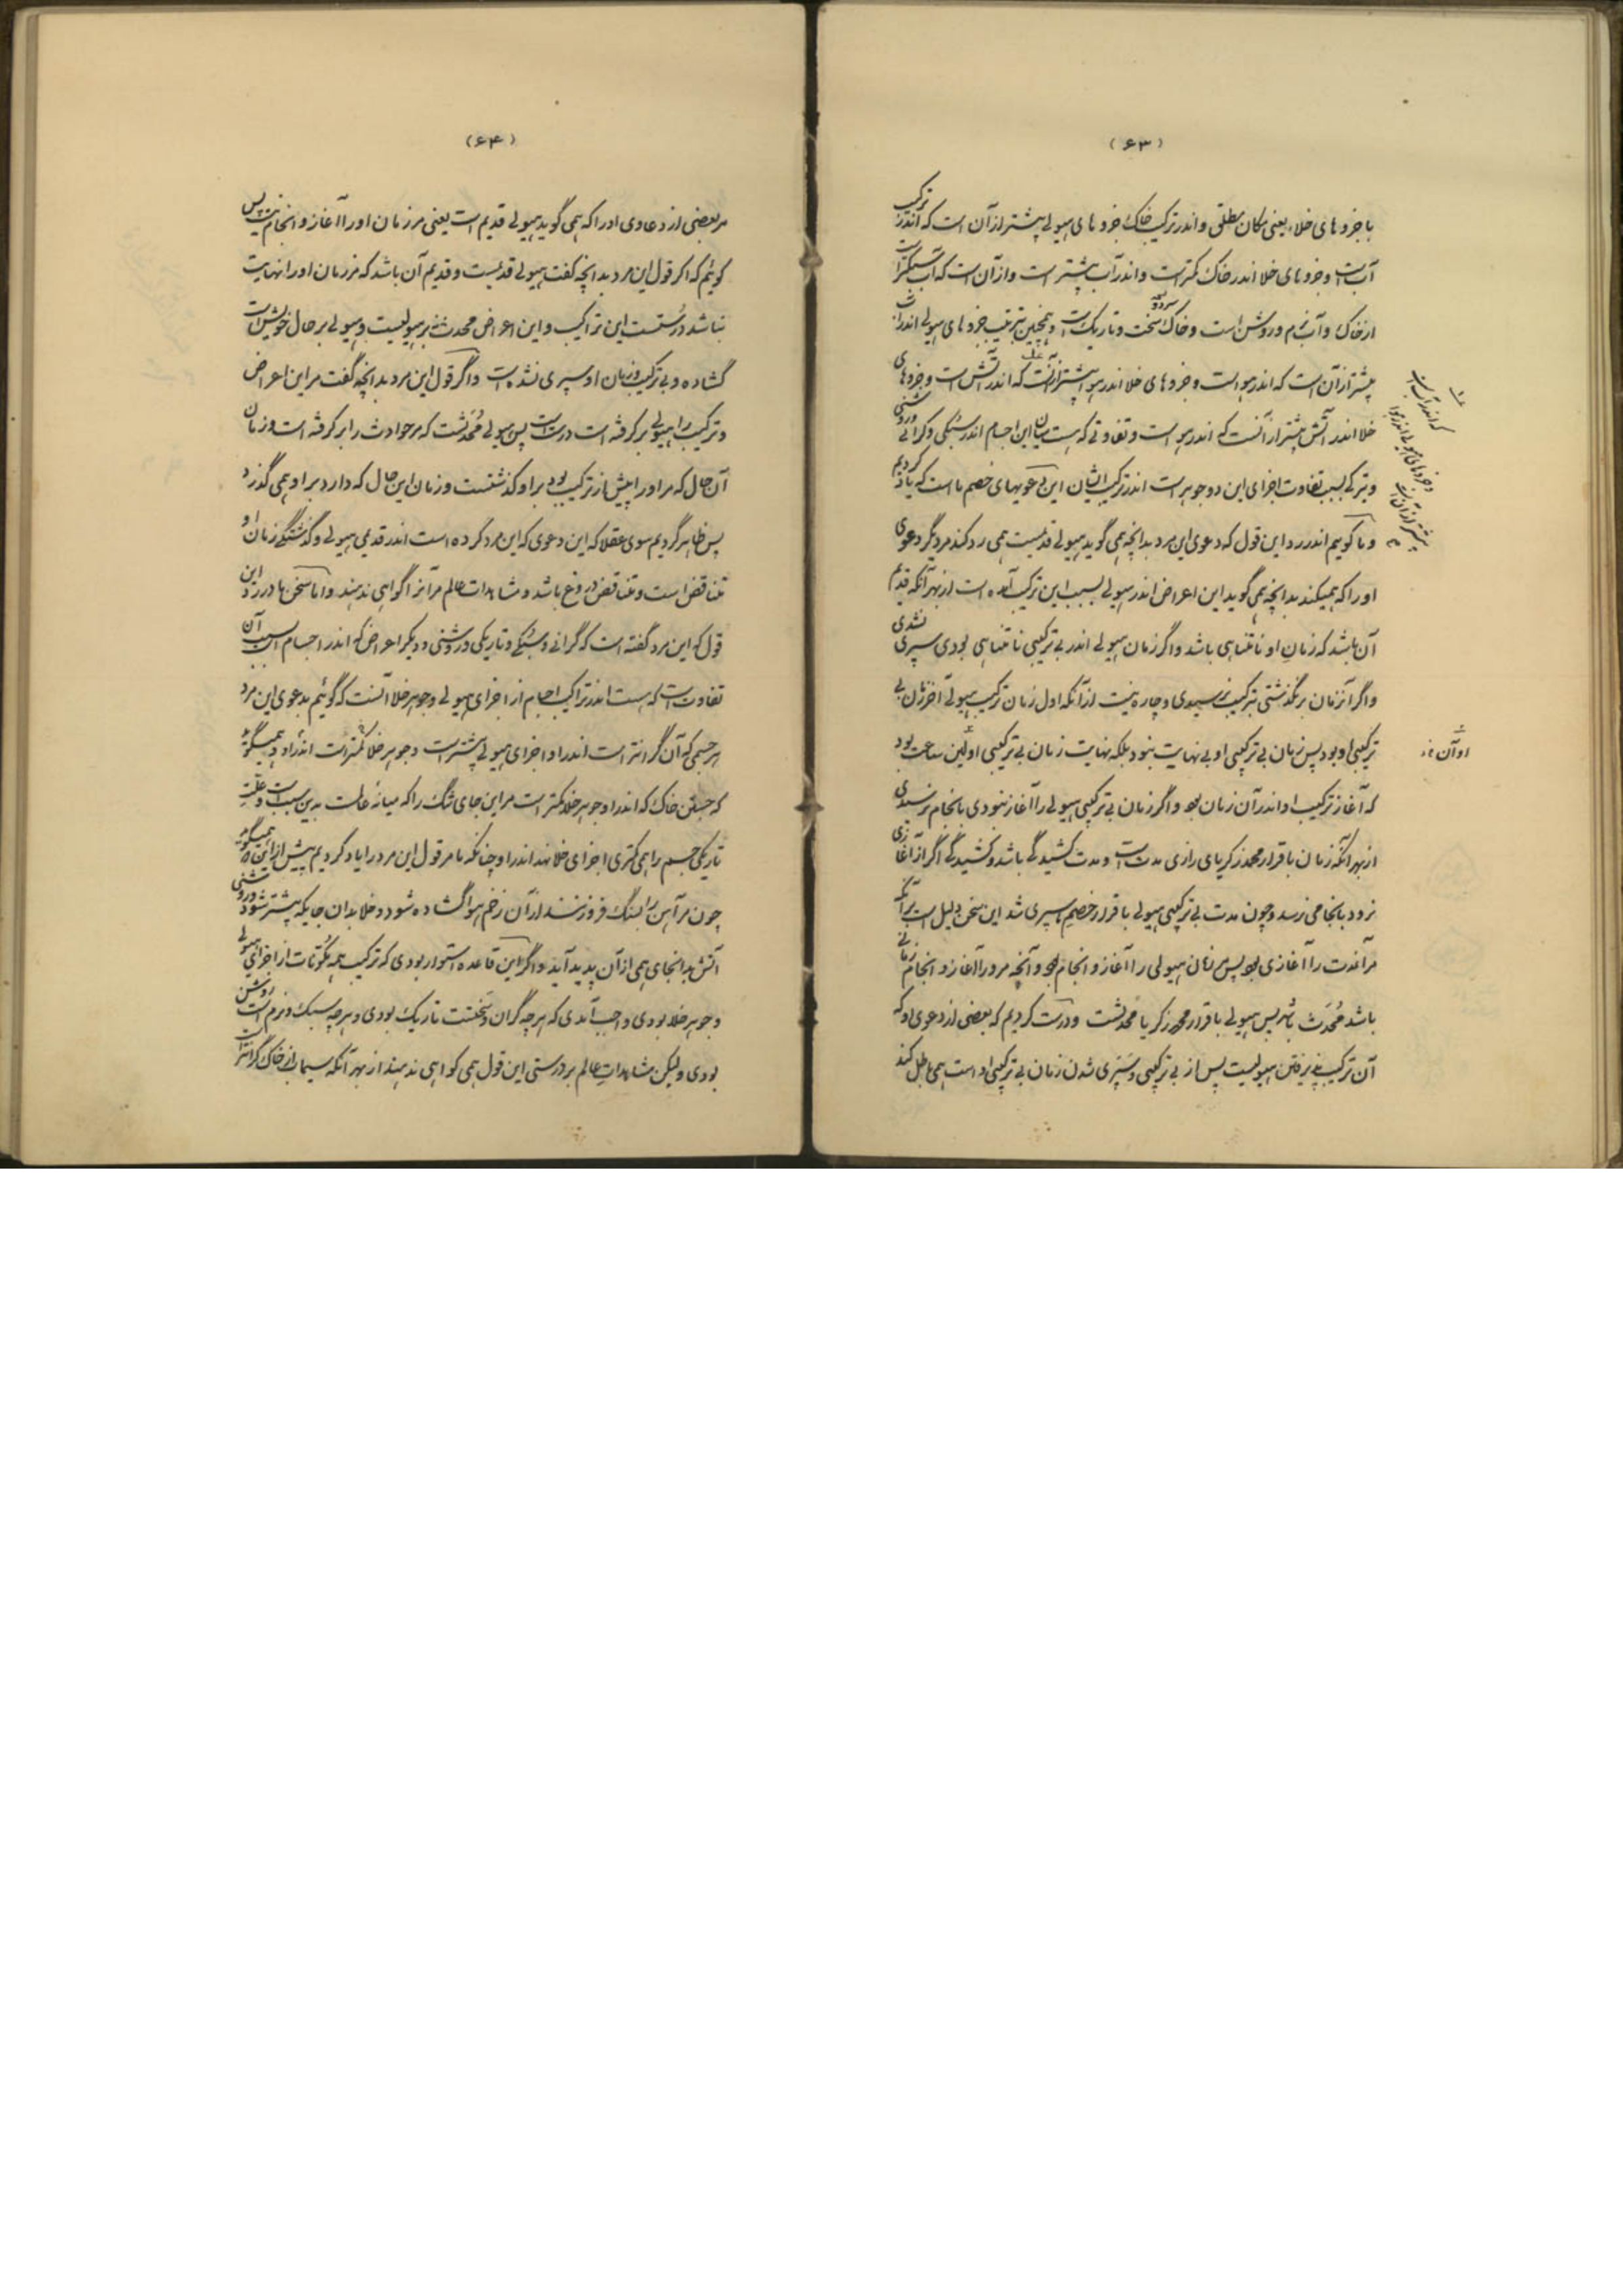 (۶۳)
با جزوهای خلاء یعنی مکان مطلق و اندر ترکیب خاک جزوهای هیولی بیشتر از آن است که اندر ترکیب
آب است و جزوهای خلا اندر خاک کمتر است و اندر آب بیشتر است و از آن است که آب سبکتر است
از خاک و آب نرم و روشن است و خاک سخت و سرد و تاریک است و همچنین بترتیب جزوهای هیولی اندر آب
بیشتر از آن است که اندر هواست و جزوهای خلا اندر هوا بیشتر از آنست که اندر آتش است و جزوهای
خلا اندر آتش بیشتر از آنست که اندر هوا است و تفاوتی که هست میان این اجسام اندر سبکی و گرانی و روشنی
و تیرگی بسبب تفاوت اجزای این دو جوهر است اندر ترکیب ایشان این دعویهای خصم ما است که یاد کردیم
و ما گوییم اندر رد این قول که دعوی این مرد بدانچه همی گوید هیولی قدیمست همی رد کند مر دیگر دعوی
او را که همیکند بدانچه همی گوید این اعراض اندر هیولی بسبب این ترکیب آمده است از بهر آنکه قدیم
آن باشد که زمان او نامتناهی باشد و اگر زمان هیولی اندر بی ترکیبی نامتناهی بودی سپری نشدی
و اگر آنزمان برنگذشتی بترکیب نرسیدی و چاره نیست از آنکه اول زمان ترکیب هیولی آخر زمان بی
ترکیبی او بود پس زمان بی ترکیبی او بی نهایت نبود بلکه نهایت زمان بی ترکیبی اولین ساعت بود
که آغاز ترکیب او اندر آن زمان بود و اگر زمان بی ترکیبی هیولی را آغاز نبودی بانجام نرسیدی
از بهر آنکه زمان باقرار محمد زکریای رازی مدت است و مدت کشیدگی باشد و کشیدگی اگر از آغازی
نرود بانجامی نرسد و چون مدت بی ترکیبی هیولی باقرار خصم ما سپری شد این سخن دلیل است بر آنکه
مر آنمدت را آغازی بود پس مر زمان هیولی را آغاز و انجام بود و آنچه مر او را آغاز و انجام زمانی
باشد مُحدَث باشد پس هیولی باقرار محمد زکریا محدثست و درست کردیم که بعضی از دعوی او که
آن ترکیب پذیرفتن هیولیست پس از بی ترکیبی و سپری شدن زمان بی ترکیبی او است همی باطل کند
که اندر آب است
و جزوهای هیولی اندر هوا
بیشتر از آن است
او آن
(۶۴)
مر بعضی از دعاوی او را که همی گوید هیولی قدیم است یعنی مر زمان او را آغاز و انجام نیست پس
گوئیم که اگر قول این مرد بدانچه گفت هیولی قدیمست و قدیم آن باشد که مر زمان او را نهایت
نباشد درستست این تراکیب و این اعراض محدث نه بر هیولیست و هیولی بر حال خویش است
گشاده و بی ترکیب و زمان او سپری نشده است و اگر قول این مرد بدانچه گفت مر این اعراض
و ترکیب را هیولی برگرفته است درست است پس هیولی مُحدَثست که مر حوادث را برگرفته است و زمان
آن حال که مر او را پیش از ترکیب بود بر او گذشتست و زمان این حال که دارد بر او همی گذرد
پس ظاهر کردیم سوی عقلا که این دعوی که این مرد کرده است اندر قدیمی هیولی و گذشتگی زمان او
متناقض است و متناقض دروغ باشد و مشاهدات عالم مر آنرا گواهی ندهند و اما سخن ما در رد این
قول که این مرد گفته است که گرانی و سبکی و تاریکی و روشنی و دیگر اعراض که اندر اجسام است بسبب آن
تفاوت است که هست اندر تراکیب اجسام از اجزای هیولی و جوهر خلا آنست که گوئیم بدعوی این مرد
هر جسمی که آن گرانتر است اندر او اجزای هیولی بیشتر است و جوهر خلا کمتر است اندر او و همیگوید
که جستن خاک که اندر او جوهر خلا کمتر است مر این جای تنگ را که میانهٔ عالمست بدین سبب است و علت
تاریکی جسم را همی کمتری اجزای خلا نهد اندر او چنانکه ما مر قول این مرد را یاد کردیم پیش از این و همیگوید
چون مر آهن را بسنگ فرو زنند از آن زخم هوا گشاده شود و خلا بدان جایگه بیشتر شود و روشنی
آتش بدانجای همی از آن پدید آید و اگر این قاعده استوار بودی که ترکیب همه مکونات از اجزای هیولی
و جوهر خلا بودی واجب آمدی که هر چه گران و سختست تاریک بودی و هر چه سبک و نرم است روشن
بودی ولیکن مشاهدات عالم بر درستی این قول همی گواهی ندهند از بهر آنکه سیماب از خاک گرانتر است